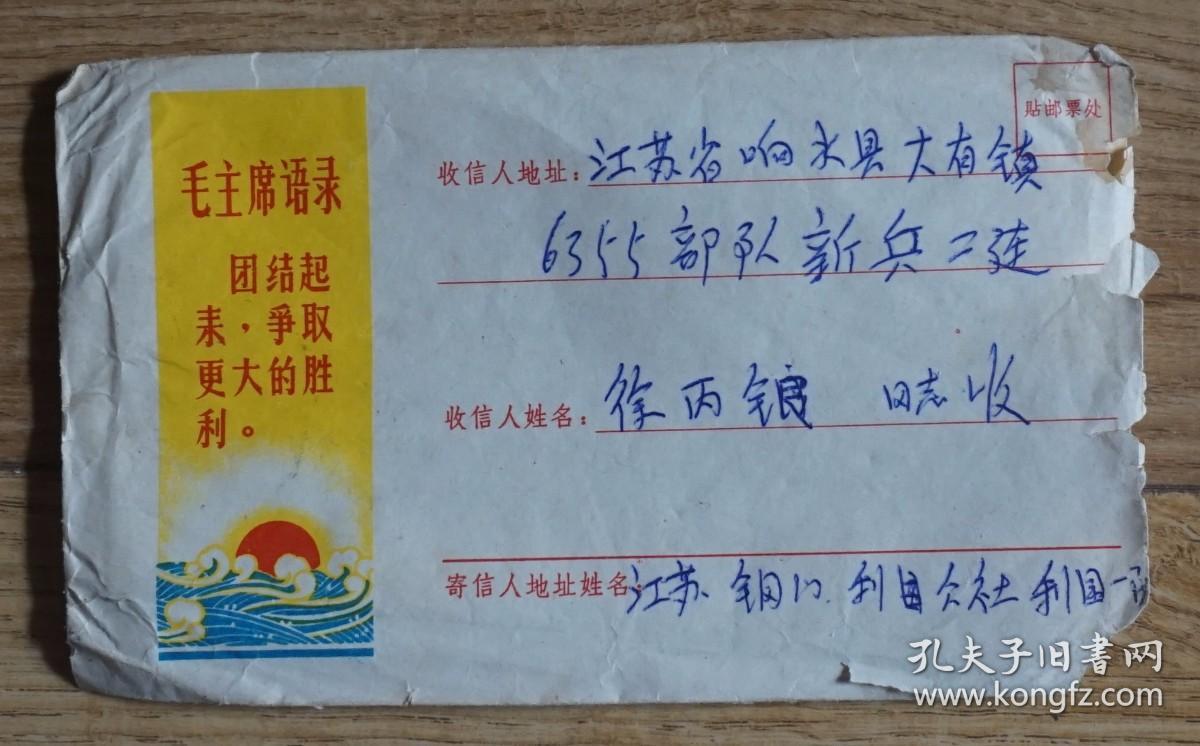 毛主席语录
团结起
来，爭取
更大的胜
利。
贴邮票处
收信人地址：江苏省响水县大有镇
6355部队新兵二连
收信人姓名：徐丙银 同志收
寄信人地址姓名 江苏 铜山 利国公社利国一
孔夫子旧書网
www.kongfz.com